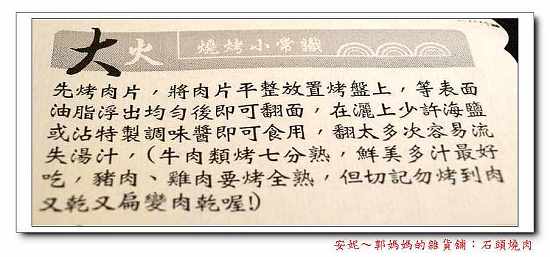 大火 燒烤小常識
先烤肉片，將肉片平整放置烤盤上，等表面
油脂浮出均勻後即可翻面，在灑上少許海鹽
或沾特製調味醬即可食用，翻太多次容易流
失湯汁，(牛肉類烤七分熟，鮮美多汁最好
吃，豬肉、雞肉要烤全熟，但切記勿烤到肉
又乾又扁變肉乾喔!)
安妮～郭媽媽的雜貨鋪：石頭燒肉